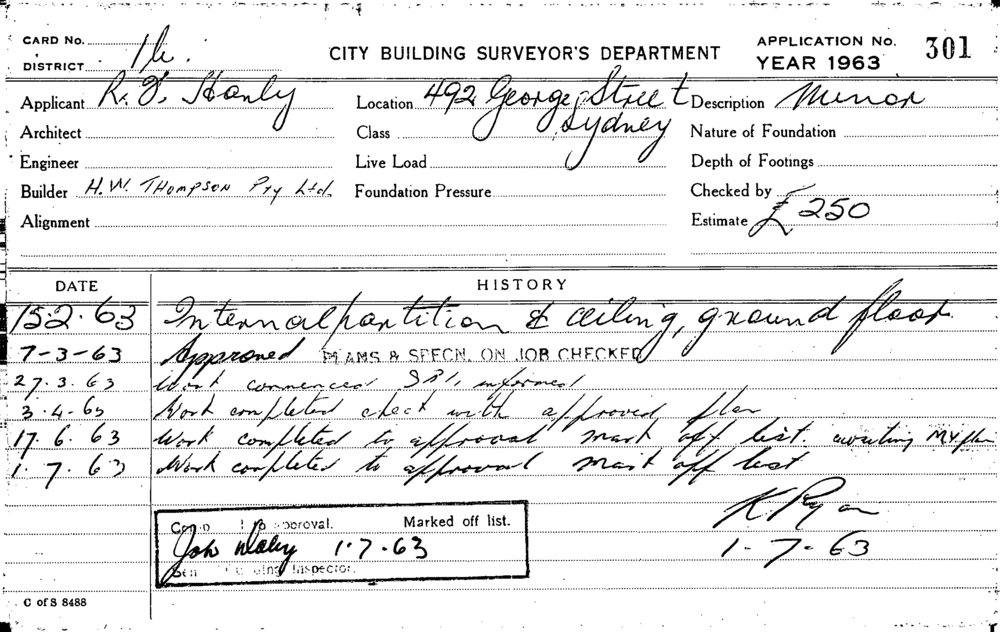 CARD No.
CITY BUILDING SURVEYOR'S DEPARTMENT
APPLICATION No. 301
DISTRICT
YEAR 1963
Applicant R. F. Hanly
Location 492 George Street Sydney
Description Minor
Architect
Class
Nature of Foundation
Engineer
Live Load
Depth of Footings
Builder H.W. THOMPSON Pty Ltd.
Foundation Pressure
Checked by
Alignment
Estimate £250
DATE HISTORY
15.2.63 Internal partition & ceiling, ground floor.
7-3-63 Approved PLANS & SPECN. ON JOB CHECKED
27.3.63 Work commenced informed
3.4.63 Work completed check with approved plan
17.6.63 Work completed to approval mark off list. awaiting
1.7.63 Work completed to approval mark off list
K Ryan
1-7-63
approval. Marked off list.
1.7.63
Building Inspector.
C of S 8488